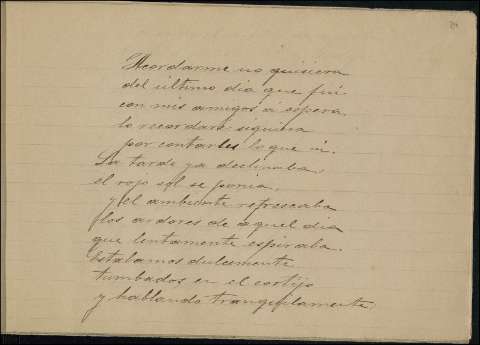 Acordarme no quisiera
del último dia que fuí
con mis amigos a espera,
lo recordaré siquiera
por contarles lo que ví.
La tarde ya declinaba,
el rojo sol se ponia,
y el ambiente refrescaba
los ardores de aquel dia
que lentamente espiraba.
Estabamos dulcemente
tumbados en el cortijo
y hablando tranquilamente